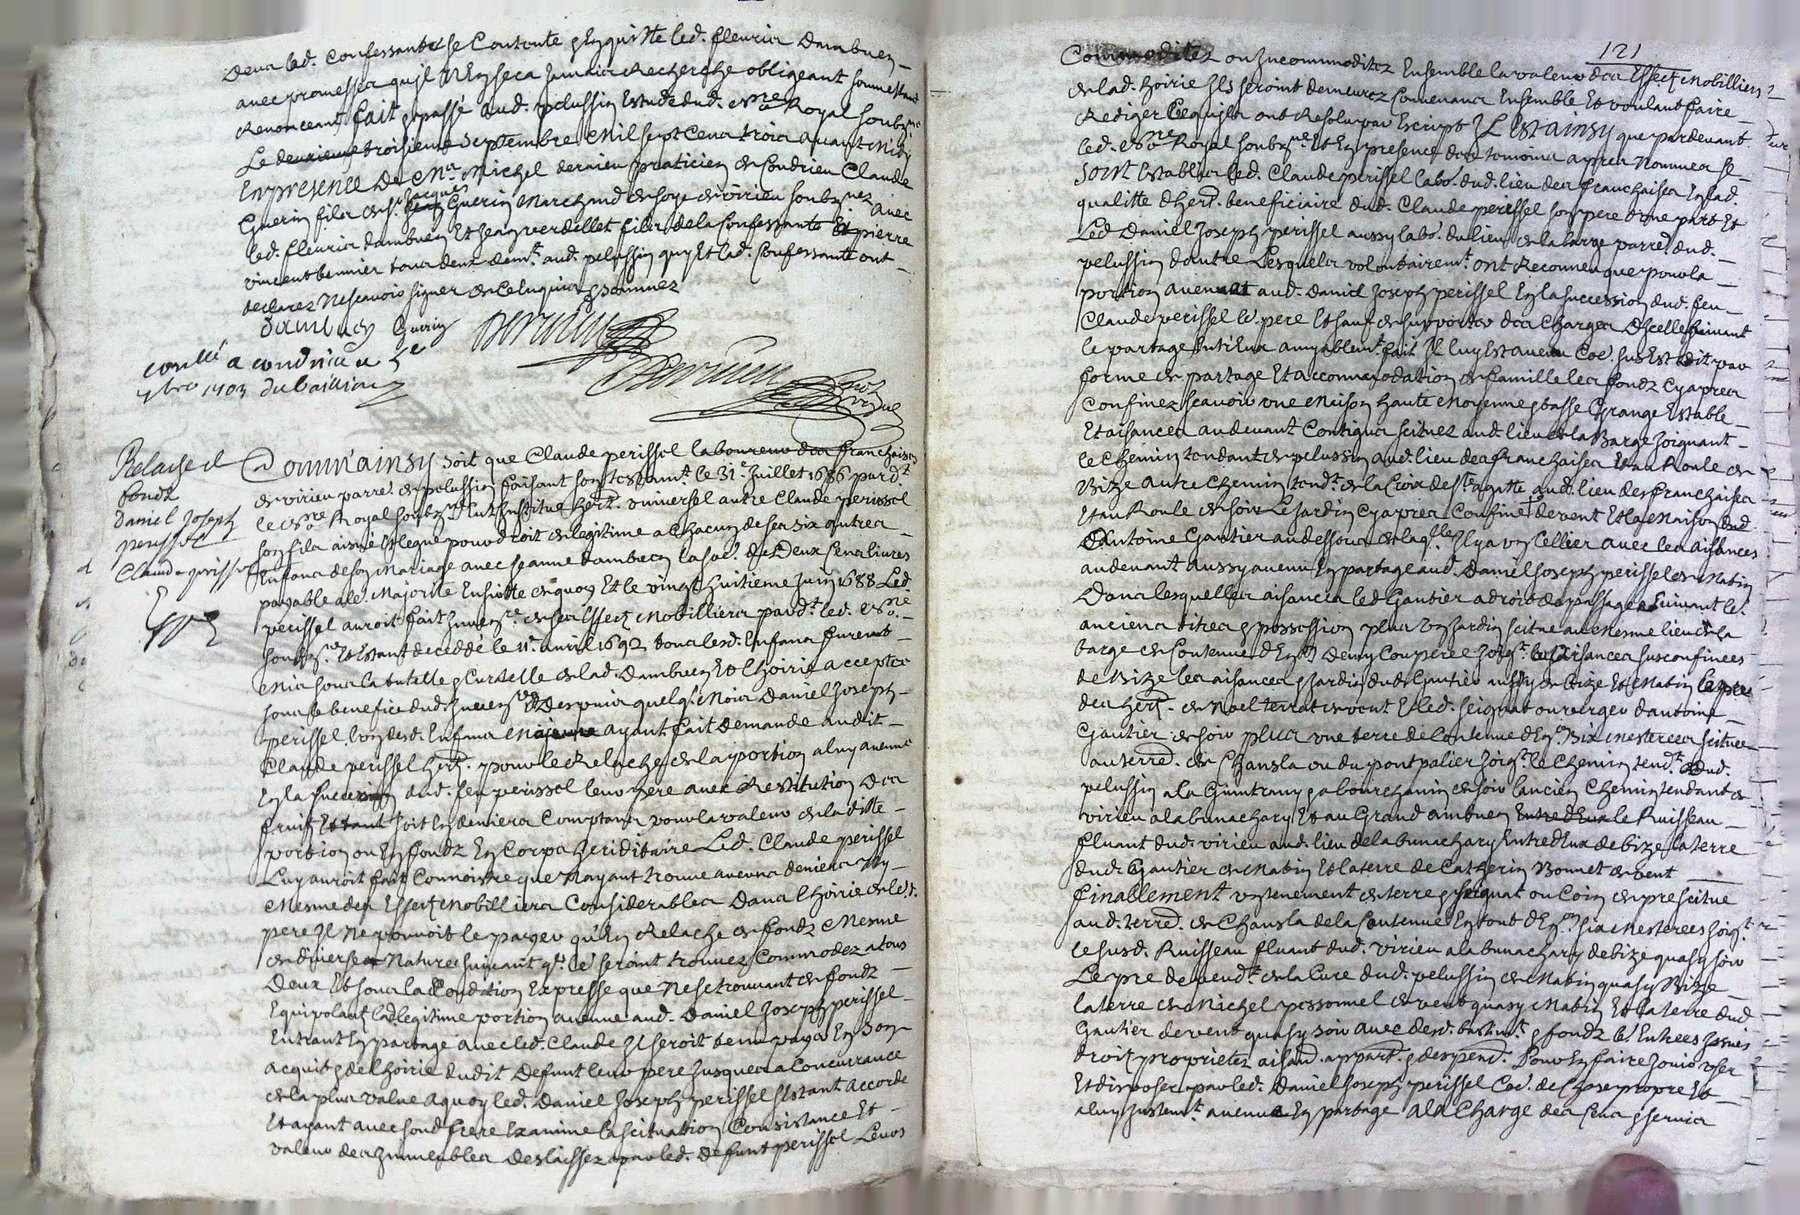 Deux led. Confessante se Contente & En quitte led. fleurier Dambuen
avec promesses qu'il N'En sera Jamais Recherché obligeant soumettant
Renonceant fait & passé aud. pelussin Estude dud. No.re Royal soub.né
Le deuxieme troisieme Septembre Mil sept Cens trois avant Midy
En presence De M.re Michel dervieu praticien de Condrieu Claude
Guerin fils de s.r Jacques Guerin Marchand de soye de virieu soub.nez avec
led. fleurier dambuen Et Jean verdellet fils de la Confessante Et pierre
vincent bonnier tous deux dem.t aud. pelussin quy Et lad. Confessante ont
declarez Ne scavoir signer de Ce Enquis & sommez
Dambuen Guerin Dervieu
conllé a condrieu le 5e
7bre 1703 dubaissiou
Relache de
fondz
Daniel Joseph
perissel
Claude perissel
Comm'ainsy soit que Claude perissel laboureur des franchaises
de virieu parre. de pelussin faisant son testam.t le 31.e Juillet 1686 pard.t
le No.re Royal soub.né Eut Institué her.r universel autre Claude perissel
son fils aisné Et legué pour droit de legitime a Chacun de ses six autres
Enfans de son Mariage avec Jeanne dambuen la so.e de Deux Cens livres
payable a le.r Majorité Ensuitte de quoy Et le vingt huitieme Juin 1688 Led.
perissel auroit fait Inven.re de ses Effectz Mobilliers pard.t led. No.re
soub.né Et Estant decedé le 11.e avril 1692 tous lesd. Enfans furent
Mis sous la tutelle & Curatelle de lad. Dambuen Et L'hoirie acceptée
sous le benefice dud. Inven.re Et Despuis quelq.s Mois Daniel Joseph
perissel l'un desd. Enfans ayant fait Demande audit
Claude perissel her.r pour le Relache de la portion a luy avenue
En la succession dud. feu perissel leur pere avec Restitution Des
fruitz soit En deniers Comptans pour la valeur de la ditte
portion ou En fondz En Corps hereditaire Led. Claude perissel
Luy auroit fait Connoistre que N'ayant trouvé aucuns deniers Ny
Mesme des Effectz Mobilliers Considerables Dans l'hoirie de le.r
pere Il Ne pouvoit le payer qu'En Relache de fondz Mesme
de diverse Nature suivant qu'ils seroint trouvez Commodez a tous
Deux Et sous la Condition Expresse que Ne se trouvant de fondz
Equipolant lad. legitime portion avenue aud. Daniel Joseph perissel
Entrant En partage avec led. Claude Il seroit tenu payer En son
acquit & de l'hoirie dudit Defunt leur pere Jusques a Concurrance
de la plus value a quoy led. Daniel Joseph perissel s'Estant accordé
Et ayant avec sond. frere Examiné la scituation Consistance Et
valeur des Immeubles Deslaissez par led. defunt perissel Leurs
121
Commoditez ou Incommoditez Ensemble la valeur des Effectz Mobilliers
de lad. hoirie Ils seroint demeurez Convenus Ensemble Et voulant faire
Rediger Ce qu'ils ont Resolu par Escript IL Est AINSY que pardevant
led. No.re Royal soub.né Et En presence des temoins apres Nommez se
sont Establis led. Claude perissel labo.r dud. lieu des franchaises En lad.
qualitte d'her.r beneficiaire dud. Claude perissel son pere d'une part Et
Led. Daniel Joseph perissel aussy labo.r du lieu de la barge parre. dud.
pelussin d'autre Lesquels volontairem.t ont Reconneu que pour la
portion avenue aud. Daniel Joseph perissel En la succession dud. feu
Claude perissel le.r pere Et sauf de supporter des Charges d'Icelle suivant
le partage Entr'Eux amyablem.t fait Il luy Est avenu Co.e sus Est dit par
forme de partage Et accommodation de famille les fondz Cy apres
Confinez scavoir une Maison haute Moyenne & basse Grange Estable
Et aisances au devant Contigus scituez aud. lieu de la Barge Joignant
le Chemin tendant de pelussin aud. lieu des franchaises Et au Roule de
Bize autre Chemin tend.t de la Croix de s.te agatte aud. lieu des franchaises
Et au Roule de soir Le Jardin Cy apres Confiné de vent Et la Maison dud.
Antoine Gautier au dessous de laq.lle Il y a un Cellier avec les aisances
au devant aussy avenu En partage aud. Daniel Joseph perissel de Matin
Dans lesquelles aisances led. Gautier a droit de passage suivant le.s
anciens titres & possession plus un Jardin scitué au Mesme lieu de la
barge de Contenue d'En.on Demy Couperée Joig.t les aisances susconfinées
de Bize les aisances & Jardin dud. Gautier aussy de bize Et Matin le pré
des her.rs de Noel terrat de vent Et led. seignat ou verger d'antoine
Gautier de soir plus une terre de Contenue d'En.on six Mesterées scituée
au terr.e de Chansla ou du pont palier Joig.t le Chemin tend.t dud.
pelussin a la Guintrany & a bourchanin de soir l'ancien Chemin tendant de
virieu a la bunachary Et au Grand ambuen le Ruisseau
fluant dud. virieu aud. lieu de la bunachary Entred'Eux de bize la terre
dud. Gautier de Matin Et la terre de Catherin Bonnet de vent
Finallement un tenement de terre & seignat ou Coin de pré scitué
aud. terr.e de Chansla de la Contenue En tout d'En.on six Mesterées Joig.t
le susd. Ruisseau fluant dud. virieu a la bunachary de bize quasy soir
Le pré depend.t de la Cure dud. pelussin de Matin quasy Bize
la terre de Michel pessonnel de vent quasy Matin Et la terre dud.
Gautier de vent quasy soir avec desd. bastim.t & fondz le.s Entrées Issues
droitz proprietez aisan.s appart. & despend. Pour En faire Jouir user
Et disposer par led. Daniel Joseph perissel Co.e de Chose propre Et
a luy Justem.t avenue En partage A la Charge des Cens & servis